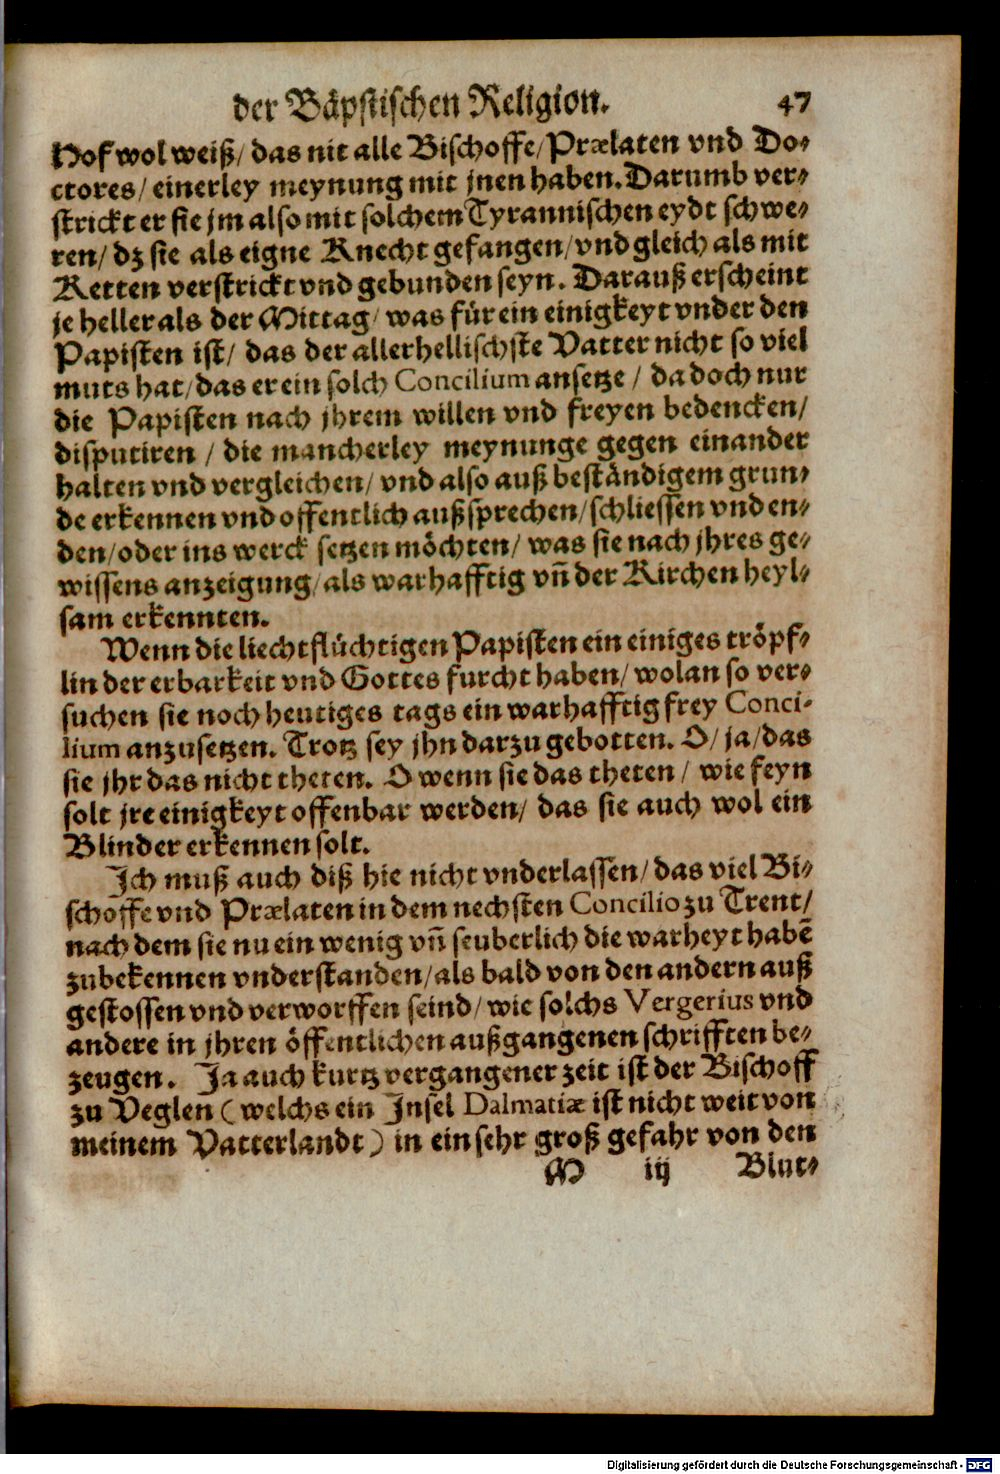 der Bäpstischen Religion. 47
Hof wol weiß/ das nit alle Bischoffe/ Prælaten vnd Do⸗
ctores/ einerley meynung mit jnen haben. Darumb ver⸗
strickt er sie jm also mit solchem Tyrannischen eydt schwe⸗
ren/ dz sie als eigne Knecht gefangen/ vnd gleich als mit
Ketten verstrickt vnd gebunden seyn. Darauß erscheint
je heller als der Mittag/ was für ein einigkeyt vnder den
Papisten ist/ das der allerhellischste Vatter nicht so viel
muts hat/ das er ein solch Concilium ansetze / da doch nur
die Papisten nach jhrem willen vnd freyen bedencken/
disputiren / die mancherley meynunge gegen einander
halten vnd vergleichen/ vnd also auß beständigem grun⸗
de erkennen vnd offentlich außsprechen/ schliessen vnd en⸗
den/ oder ins werck setzen möchten/ was sie nach jhres ge⸗
wissens anzeigung/ als warhafftig vñ der Kirchen heyl⸗
sam erkennten.
Wenn die liechtflüchtigen Papisten ein einiges tröpf⸗
lin der erbarkeit vnd Gottes furcht haben/ wolan so ver⸗
suchen sie noch heutiges tags ein warhafftig frey Conci-
lium anzusetzen. Trotz sey jhn darzu gebotten. O/ ja/ das
sie jhr das nicht theten. O wenn sie das theten / wie feyn
solt jre einigkeyt offenbar werden/ das sie auch wol ein
Blinder erkennen solt.
Ich muß auch diß hie nicht vnderlassen/ das viel Bi⸗
schoffe vnd Prælaten in dem nechsten Concilio zu Trent/
nach dem sie nu ein wenig vñ seuberlich die warheyt habẽ
zubekennen vnderstanden/ als bald von den andern auß
gestossen vnd verworffen seind/ wie solchs Vergerius vnd
andere in jhren öffentlichen außgangenen schrifften be⸗
zeugen. Ja auch kurtz vergangener zeit ist der Bischoff
zu Veglen ( welchs ein Insel Dalmatiæ ist nicht weit von
meinem Vatterlandt ) in ein sehr groß gefahr von den
M iij Blut⸗
Digitalisierung gefördert durch die Deutsche Forschungsgemeinschaft - DFG